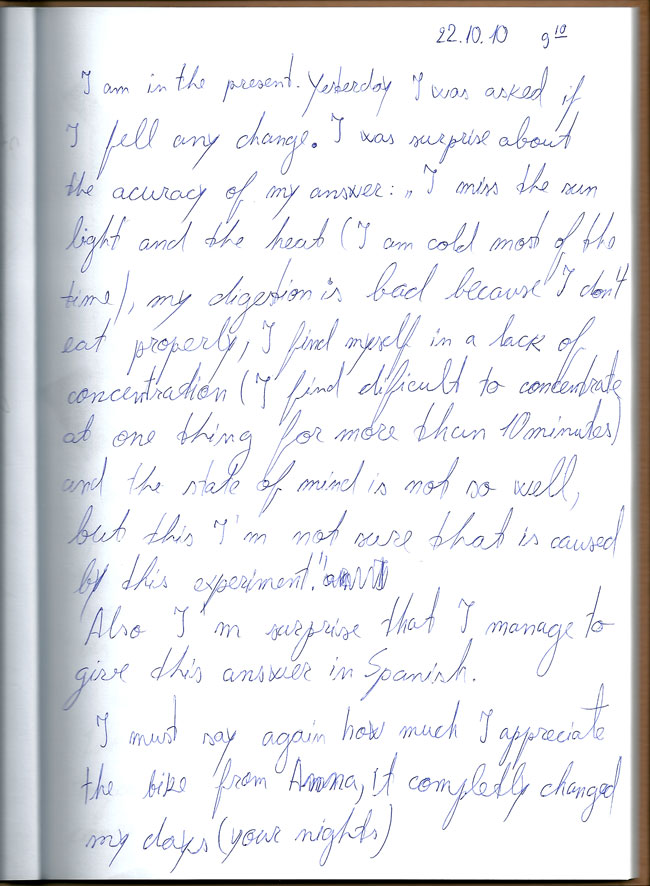 22.10.10 9¹⁰
I am in the present. Yesterday I was asked if
I fell any change. I was surprise about
the acuracy of my answer: „I miss the sun
light and the heat (I am cold most of the
time), my digestion is bad because I don't
eat properly, I find myself in a lack of
concentration (I find dificult to concentrate
at one thing for more than 10 minutes)
and the state of mind is not so well,
but this I'm not sure that is caused
by this experiment."
Also I'm surprise that I manage to
give this answer in Spanish.
I must say again how much I appreciate
the bike from Anna, it completly changed
my days (your nights)